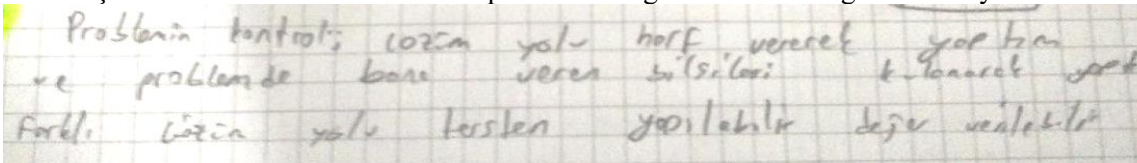 Problemin kontrolü; çözüm yolu harf vererek yaptım
ve problemde bana veren bilgileri kullanarak
Farklı çözüm yolu tersten yapılabilir değer verilebilir